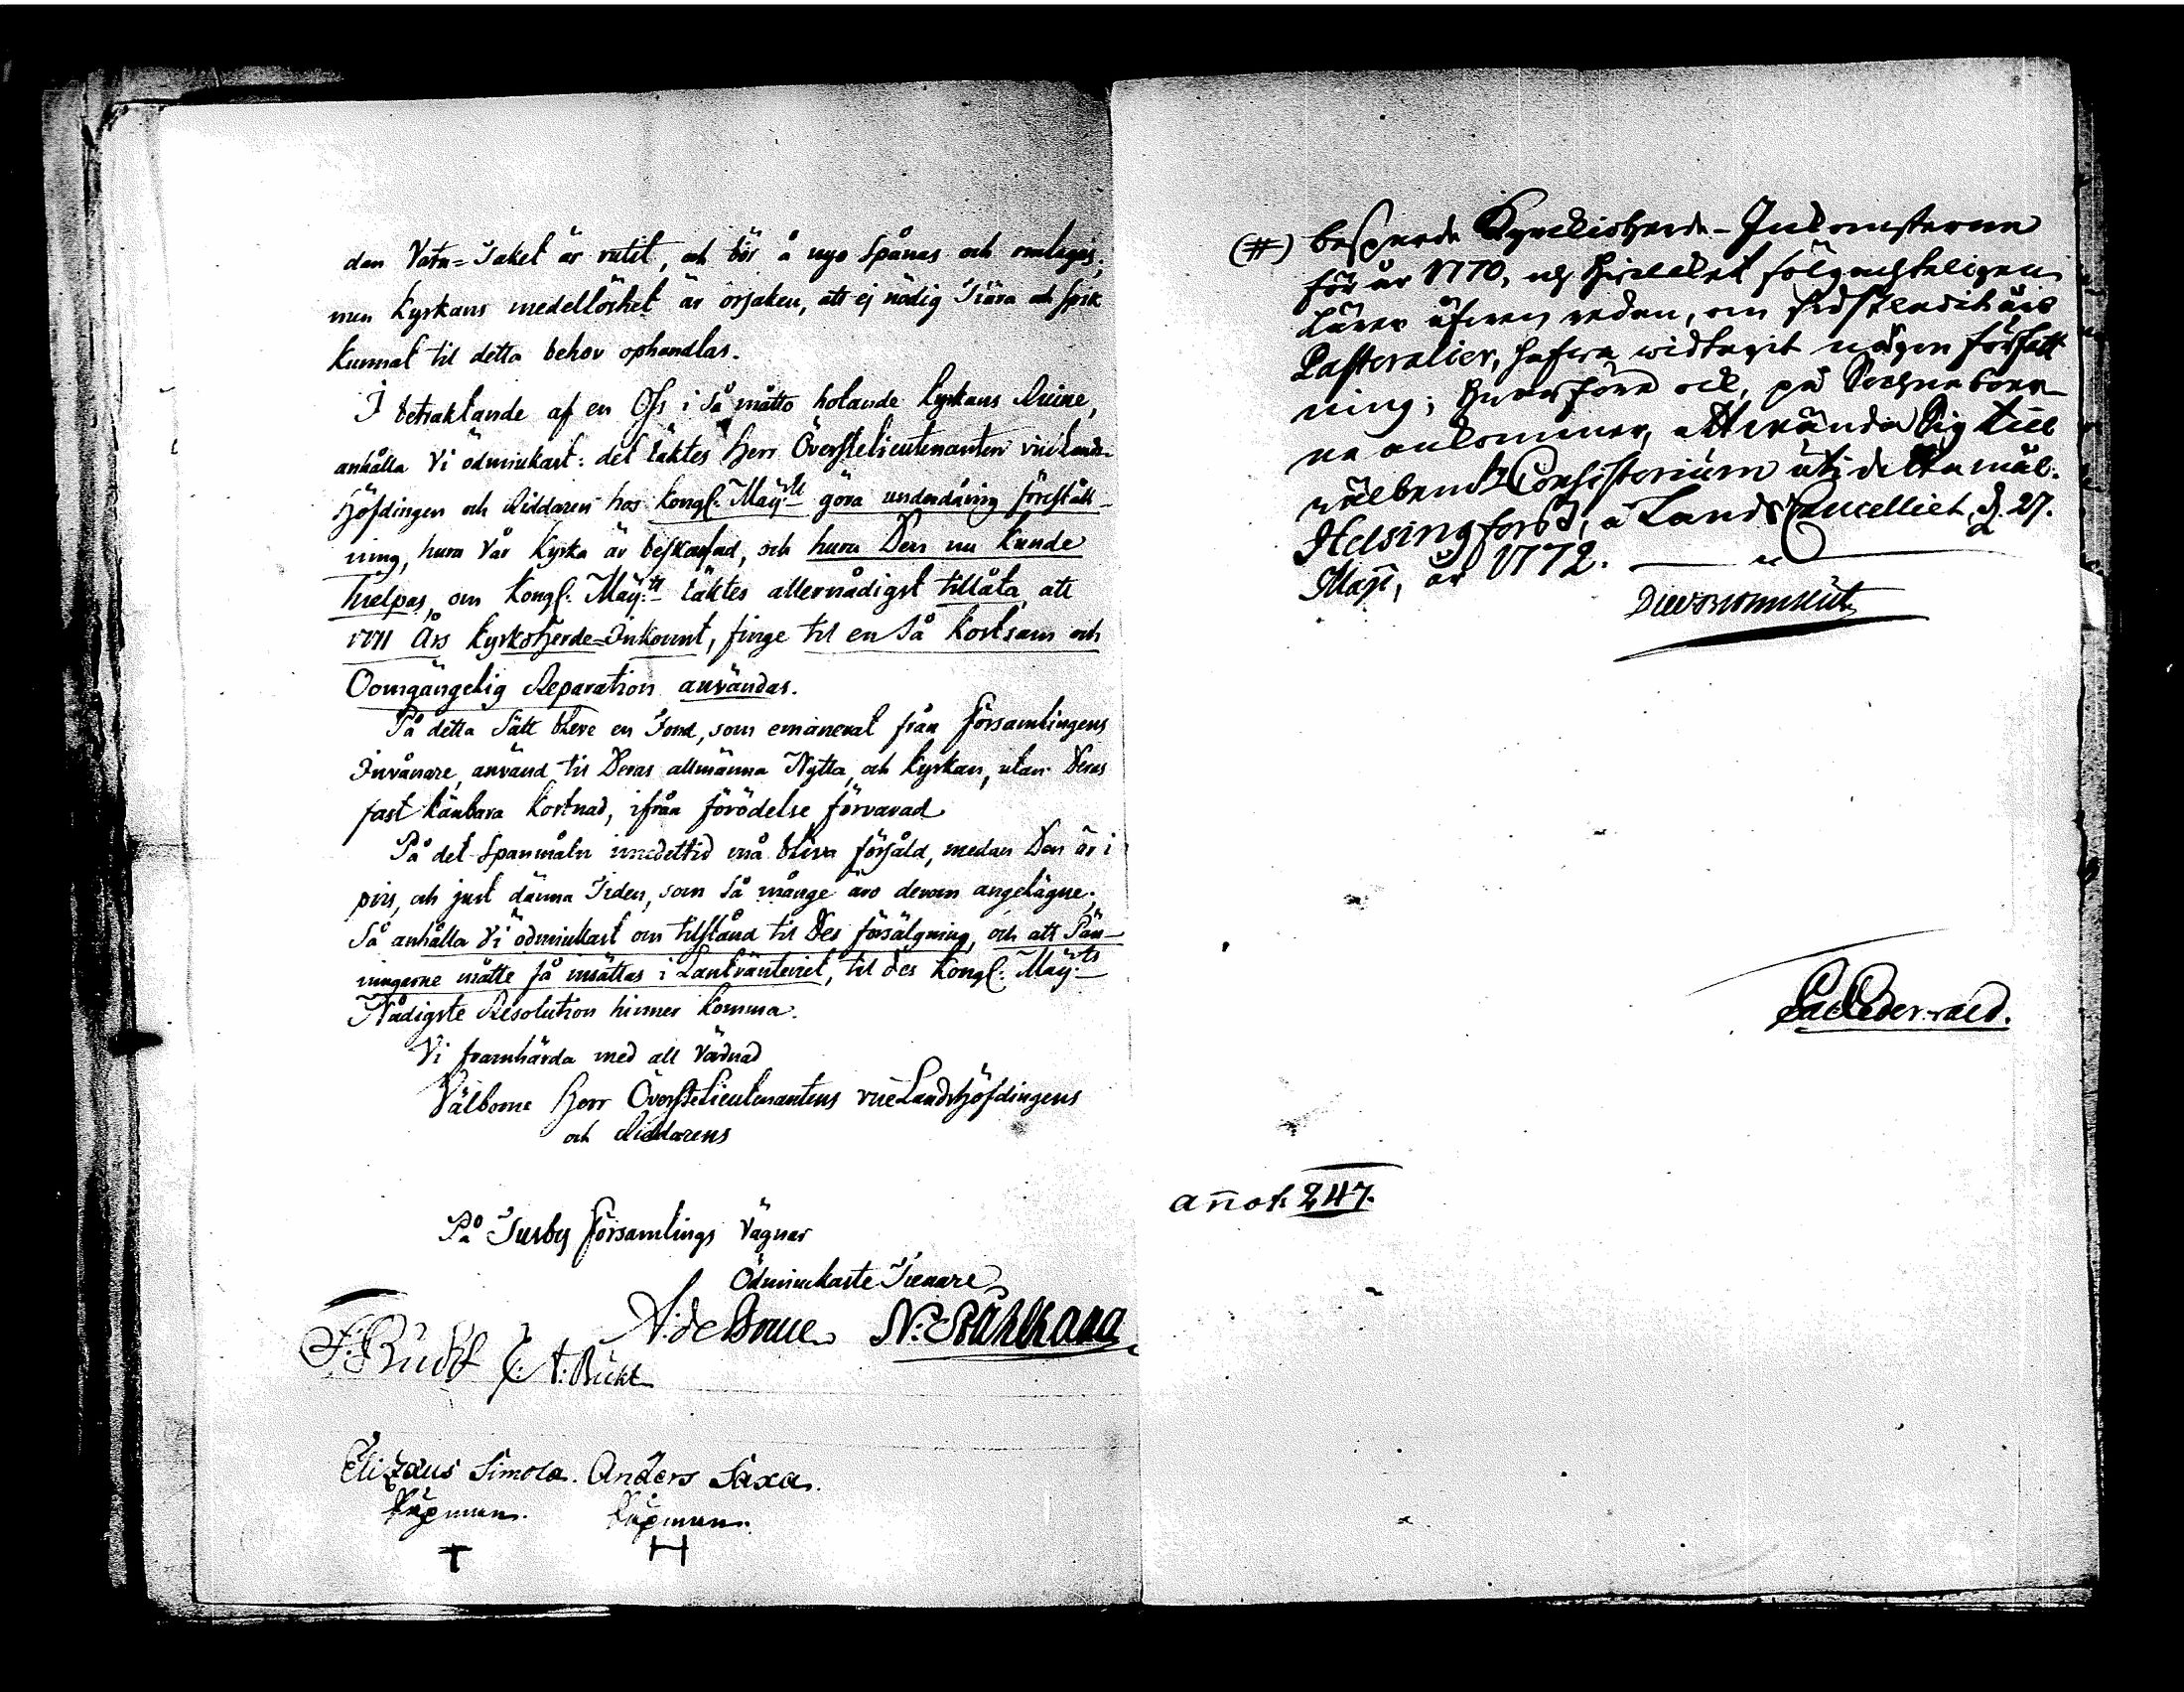 dan Vatn=Taket är rutit, och bör å nyo Spånas och omlagas,
men Kyrkans medellöshet är orsaken, att ej nödig Tiära och Spik
Kunnat til detta behov ophandlas.
I betraktande af en Oss i så måtto hotande Kyrkans Ruine,
anhålla Vi ödmiukast: det täktes Herr Överstelieutenanten vice Lands-
Höfdingen och Riddaren hos Kongl. Maij:tt göra underdånig föreställ-
ning, huru Vår Kyrka är beskaffad, och huru Den nu Kunde
hielpas, om Kongl. Maij:tt täktes allernådigst tillåta, att
1771 Års Kyrkoherde=Inkomst, finge til en Så Kostsam och
Oomgängelig Reparation användas.
På detta Sätt bleve en Fond, som emanerat från Församlingens
Invånare, använd til Deras allmänna Nytta, och Kyrkan, utan Deras
fast Känbara Kostnad, ifrån förödelse förvarad
På det Spanmåln imedlertid må bliva försåld, medan Den är i
pris, och just dänna Tiden, som Så månge äro derom angelägne;
Så anhålla Vi ödmiukast om tilstånd til Des försälgning, och att Pän-
ningarne måtte få insättas i Lantränteriet, til des Kongl. Maij:ts
Nådigste Resolution hinner komma.
Vi framhärda med all Vördnad
Välborne Herr Överstelieutenantens vice Landshöfdingens
och Riddarens
På Tusby Församlings Vägnar
Ödmiukaste Tienare
A: de Bruce N: Stålhana
E: A: Bückt
Elizæus Simola. Anders Saxa.
Näpman. Näpman.
T H
(#) besparde Kyrckioherde-Inkomsterne
för år 1770, och Hvilket följachteligen
lärer äfwen redan, om sidstledit års
Pastoralier, hafwa widtagit någon författ
ning; Hwarföre ock, på Sochneboer-
ne ankommer, att wända sig till
wälbem:te Consistorium uti detta mål.
Helsingfors, å Lands Cancelliet, d. 27.
Maji, år 1772.
Cederwald.
anot. 247.